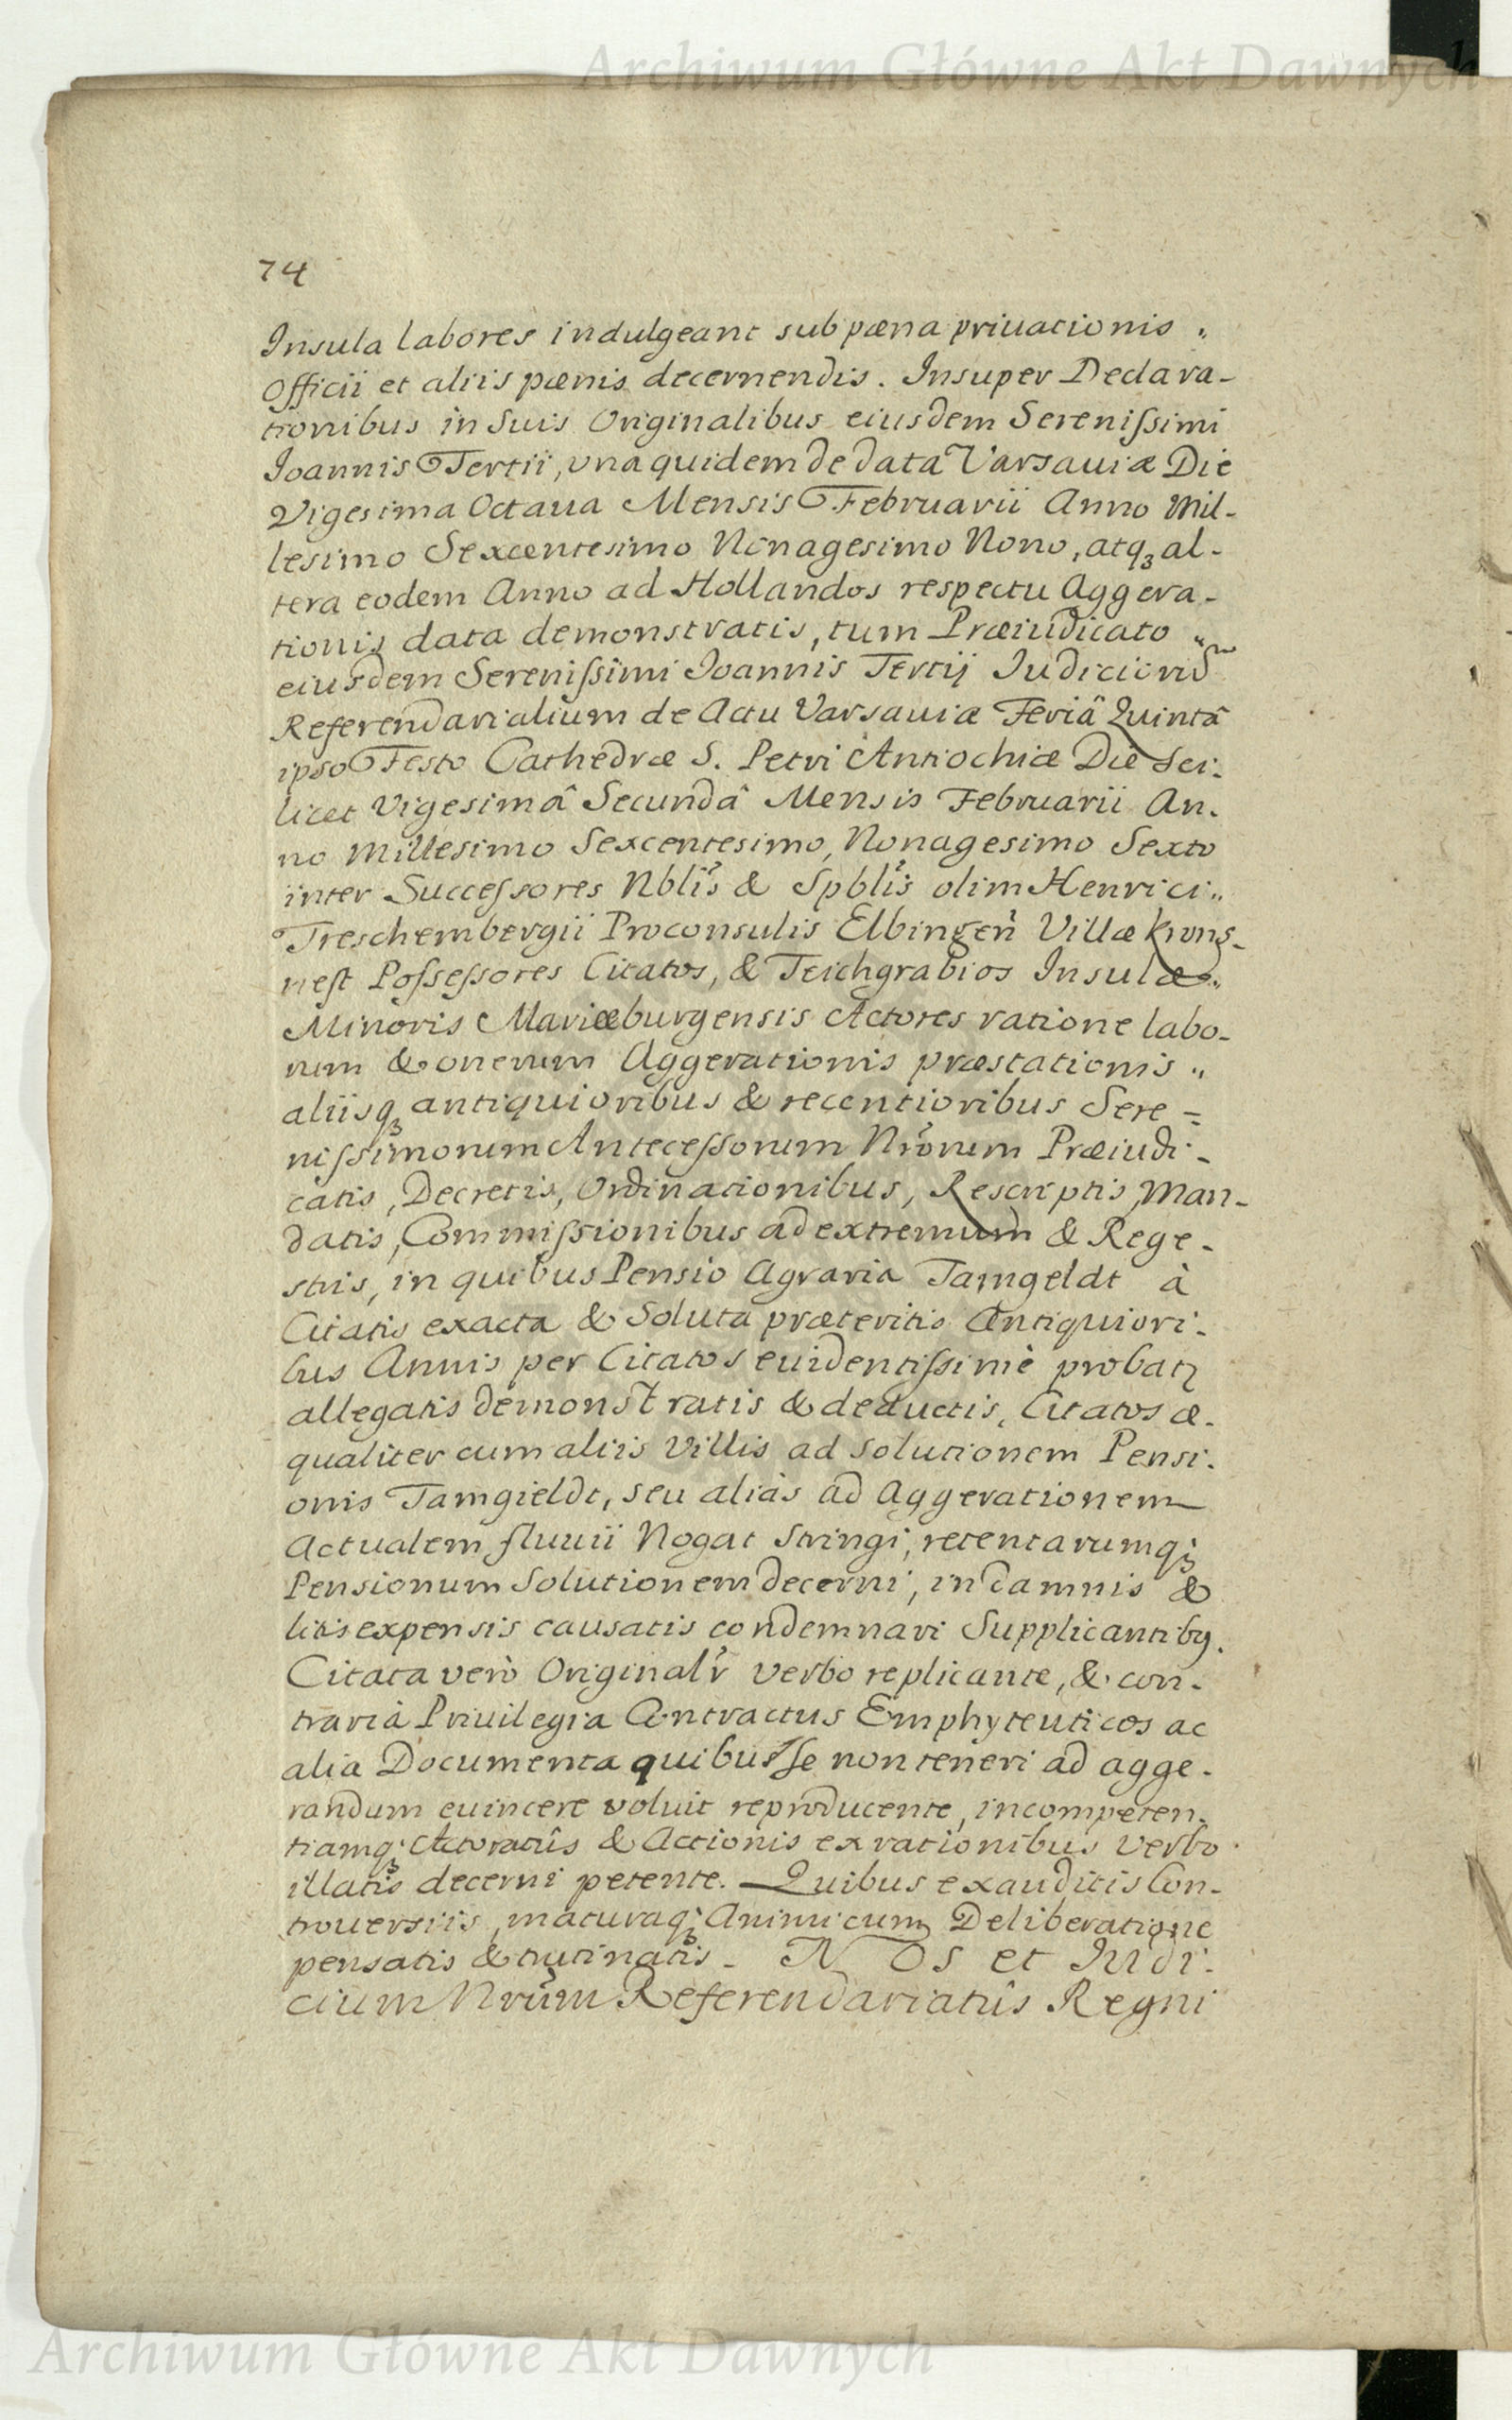 Archiwum Główne Akt Dawnych
74
Insula labores indulgeant sub pœna priuationis „
Officii et aliis pœnis decernendis. Insuper Declara-
tionibus in Suis Originalibus eiusdem Serenißimi
Joannis Tertii, vna quidem de data Varsauiæ Die
Vigesima Octaua Mensis Februarii Anno Mil-
lesimo Sexcentesimo Nonagesimo Nono, atqꝫ al-
tera eodem Anno ad Hollandos respectu Aggera-
tionis data demonstratis, tum Præiudicato „
eiusdem Serenißimi Joannis Tertij Iudiciorũ
Referendarialium de Actu Varsauiæ Feriâ Quintâ
ipso Festo Cathedræ S. Petri Antiochiæ Die Sci-
licet Vigesimâ Secundâ Mensis Februarii An-
no Millesimo Sexcentesimo, Nonagesimo Sexto
inter Succeßores Nblis & Spblis olim Henrici „
Treschembergii Proconsulis Elbingeñ Villæ Krons-
nest Poßeßores Citatos, & Teichgrabios Insulæ „
Minoris Mariæburgensis Actores ratione labo-
rum & onerum Aggerationis præstationis „
aliisqꝫ antiquioribus & recentioribus Sere =
nißimorum Anteceßorum Nrorum Præiudi-
catis, Decretis, Ordinationibus, Rescriptis, Man-
datis, Commißionibus ad extremum & Rege-
stris, in quibus Pensio Agraria Tamgeldt à
Citatis exacta & Soluta præteritis Antiquiori-
bus Annis per Citatos euidentißimè probatꝫ
allegatis demonstratis & deductis, Citatos æ-
qualiter cum aliis Villis ad Solutionem Pensi-
onis Tamgieldt, seu aliàs ad Aggerationem
Actualem fluuii Nogat Stringi, retentarumqꝫ
Pensionum Solutionem decerni, in damnis &
litis expensis causatis condemnari Supplicantibꝯ.
Citata verò Originalr̃ verbo replicante, & con-
traria Priuilegia Contractus Emphyteuticos ac
alia Documenta quibus Se non teneri ad agge-
randum euincere voluit reproducente, incompeten-
tiamqꝫ Actoratûs & Actionis ex rationibus verbo
illatis decerni petente. — Quibus exauditis Con-
trouersiis, maturaqꝫ Animi cum Deliberatione
pensatis & trutinatis - NOS et Iudi-
cium Nrũm Referendariatûs Regni
Archiwum Główne Akt Dawnych